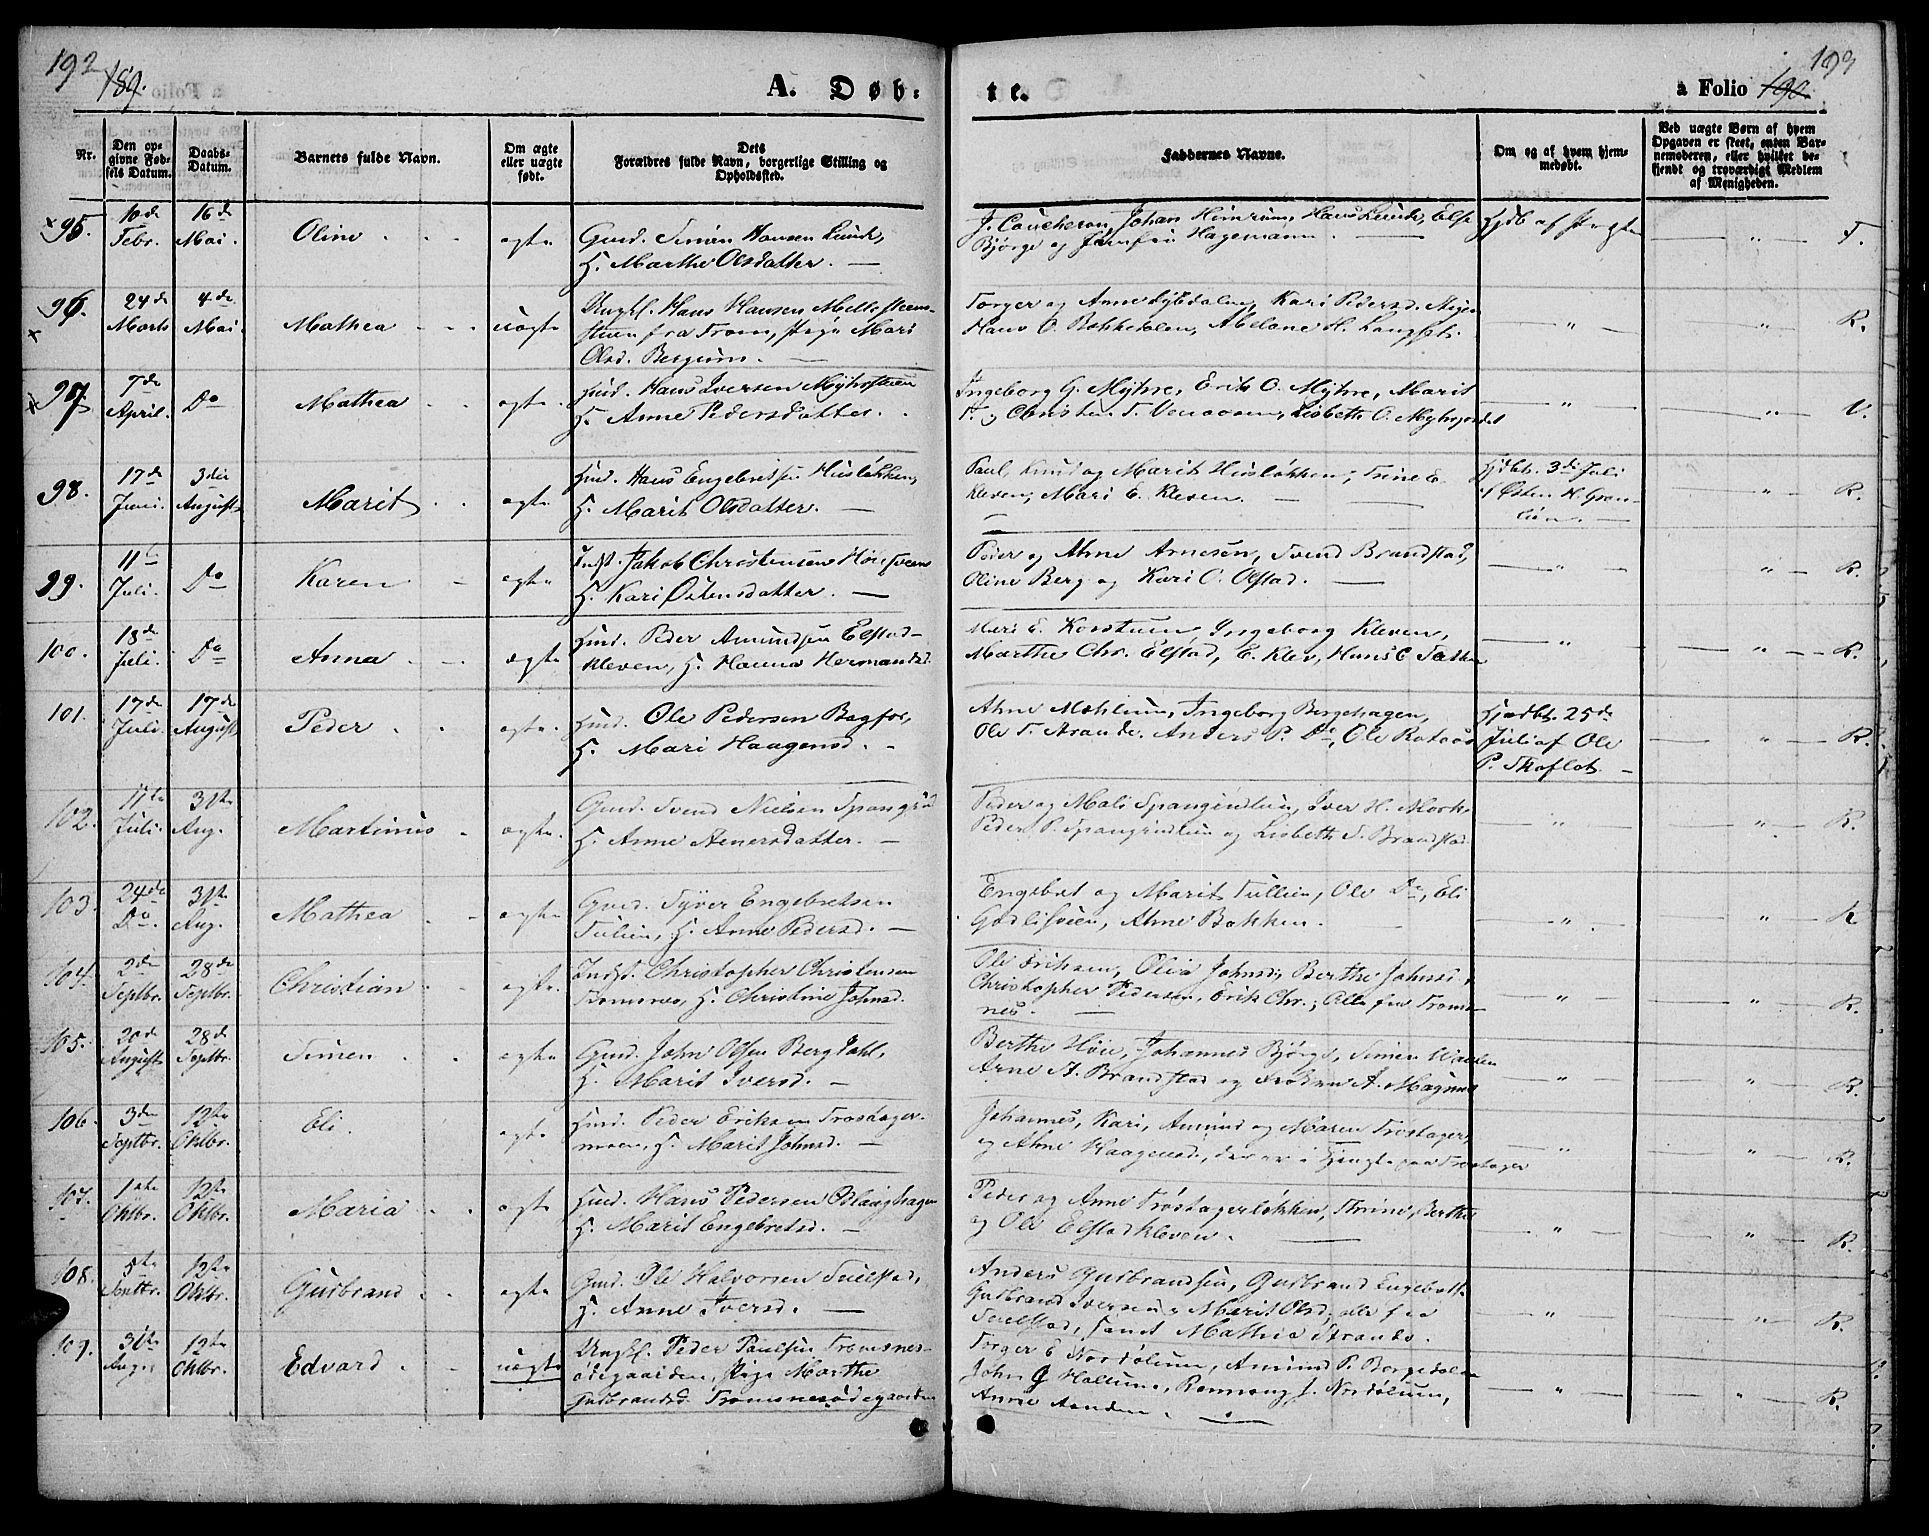 192 189.
A. Døb-
te.
193
a Folio 190.
Nr.
Den op-
givne Fød-
sels Datum.
Daabs-
Datum.
Barnets fulde Navn.
Om ægte
eller uægte
født.
Dets
Forældres fulde Navn, borgerlige Stilling og
Opholdssted.
Faddernes Navne.
Om og af hvem hjem-
medøbt.
Ved uægte Børn af hvem
Opgaven er skeet, enten Bar-
nemoderen, eller hvilket be-
kjendt og troværdigt Medlem
af Menigheden.
× 95.
10de Febr.
16de Mai.
Oline
ægte
Gmd. Simen Hansen Lunde,
H. Marthe Olsdatter. —
Johan Hemrum, Hans Lunde, Else
Bjørge og Jomfru Hagemann. —
Hjdb af Præsten
— " — F.
× 96.
24de Marts
4de Mai.
Mathea
uægte
Ungkl. Hans Hansen
fra Fron, Pige Mari
Olsd. Bergum. —
Torger og Anne Kari Pedersd.
Hans O. Bakkedalen, Abelone H.
— " —
— " — R.
× 97.
7de April.
Do
Mathea
ægte
Husd. Hans Iversen Myhrsveen
H. Anne Pedersdatter.
Ingeborg G. Myhre, Erik O. Myhre, Marit
T. og Christen T. Lisbeth O. Myhrjordet
— " —
— " — V.
98.
17de Juni.
3die August
Marit
ægte
Husd. Hans Engebretsen Husløkken,
H. Marit Olsdatter. —
Paul, Knud og Marit Husløkken, Trine E.
Kleven, Mari E. Kleven. —
Hjdbt. 3de Juli
af Østen H. Grøn-
lien. —
— " — R.
99.
11te Juli.
Do
Karen
ægte
Indst. Jakob Christensen
H. Kari Østensdatter. —
Peder og Ahne Arnesen, Svend Brandstad,
Oline Berg og Kari O. Olstad. —
— " —
— " — R.
100.
18de Juli.
Do
Anna
ægte
Husd. Peder Amundsen Elstad-
kleven, H. Hanna Hermandsd.
Mari E. Ingeborg Kleven,
Marthe Chr. Elstad, E. Klev, Hans C
— " —
— " — R.
101.
17de Juli.
17de August
Peder
ægte.
Husd. Ole Pedersen
H. Mari Haagensd. -
Ahne Mohlium, Ingeborg Bergehagen,
Ole T. Strande. Anders P. Do, Ole
Hjdbt. 25de
Juli af Ole
P. Skaflot. —
— " — R.
102.
17te Juli.
31te Aug.
Martinus
ægte.
Gmd. Svend Nielsen Spangrud
H. Anne Arnesdatter. —
Peder og Mali Spangrudlien, Iver H. Mork,
Peder P. Spangrudlien og Lisbeth S. Brandstad
— " —
— " — R.
103.
24de Do.
31te Aug.
Mathea
ægte
Gmd. Syver Engebretsen
Tulien, H. Anne Pedersd. —
Engebret og Marit Tullien, Ole Do, Eli
Godlisveen, Ahne Bakken. -
— " —
— " — R
104.
2den Septbr.
28de Septbr.
Christian
ægte.
Indst. Christopher Christensen
Tromsnes, H. Christine Johnsd.
Ole Eriksen, Olia Johnsd, Berthe Johnsd,
Christopher Pedersen, Erik Chr., Alle fra Troms-
nes. —
— " —
— " — R.
105.
20de August
28de Septbr.
Simen
ægte
Gmd. John Olsen Bergdahl,
H. Marit Iversd. —
Berthe Høie, Johannes Bjørge, Simen
Arne A. Brandstad og Frøken A. Magnus
— " —
" R.
106.
3de Septbr.
12te Oktbr.
Eli.
ægte
Husd. Peder Eriksen Frostager-
moen, H. Marit Johnsd. —
Johannes, Kari, Amund og Maren Frøstager,
og Ahne Haagensd, der er i Tjeneste paa Frøstager
— " —
" R.
107.
1ste Oktbr.
12te Oktbr.
Maria
ægte
Husd. Hans Pedersen Odlaughagen
H. Marit Engebretsd. —
Peder og Anne Frøstagerløkken, Thrine, Berthe
og Ole Elstadkleven. —
— " —
" R.
108.
5te Septbr.
12te Oktbr.
Gudbrand
ægte
Gmd. Ole Halvorsen
H. Anne Iversd. —
Anders Gudbrandsen, Gudbrand Engebretsen
Gudbrand Iversen, Marit Olsd, alle fra
samt Mathia Strande.
— " —
" R.
109.
31te Augst
12te Oktbr.
Edvard
uægte
Ungkl. Peder Paulsen Tromsnes-
ødegaarden, Pige Marthe
Gudbrandsd. Tromsnesødegaarden
Torger E Nordølum, Amund P. Bergedalen
John G Hallum, Rønnaug J. Nordølum,
Anne
— " —
— " — R.